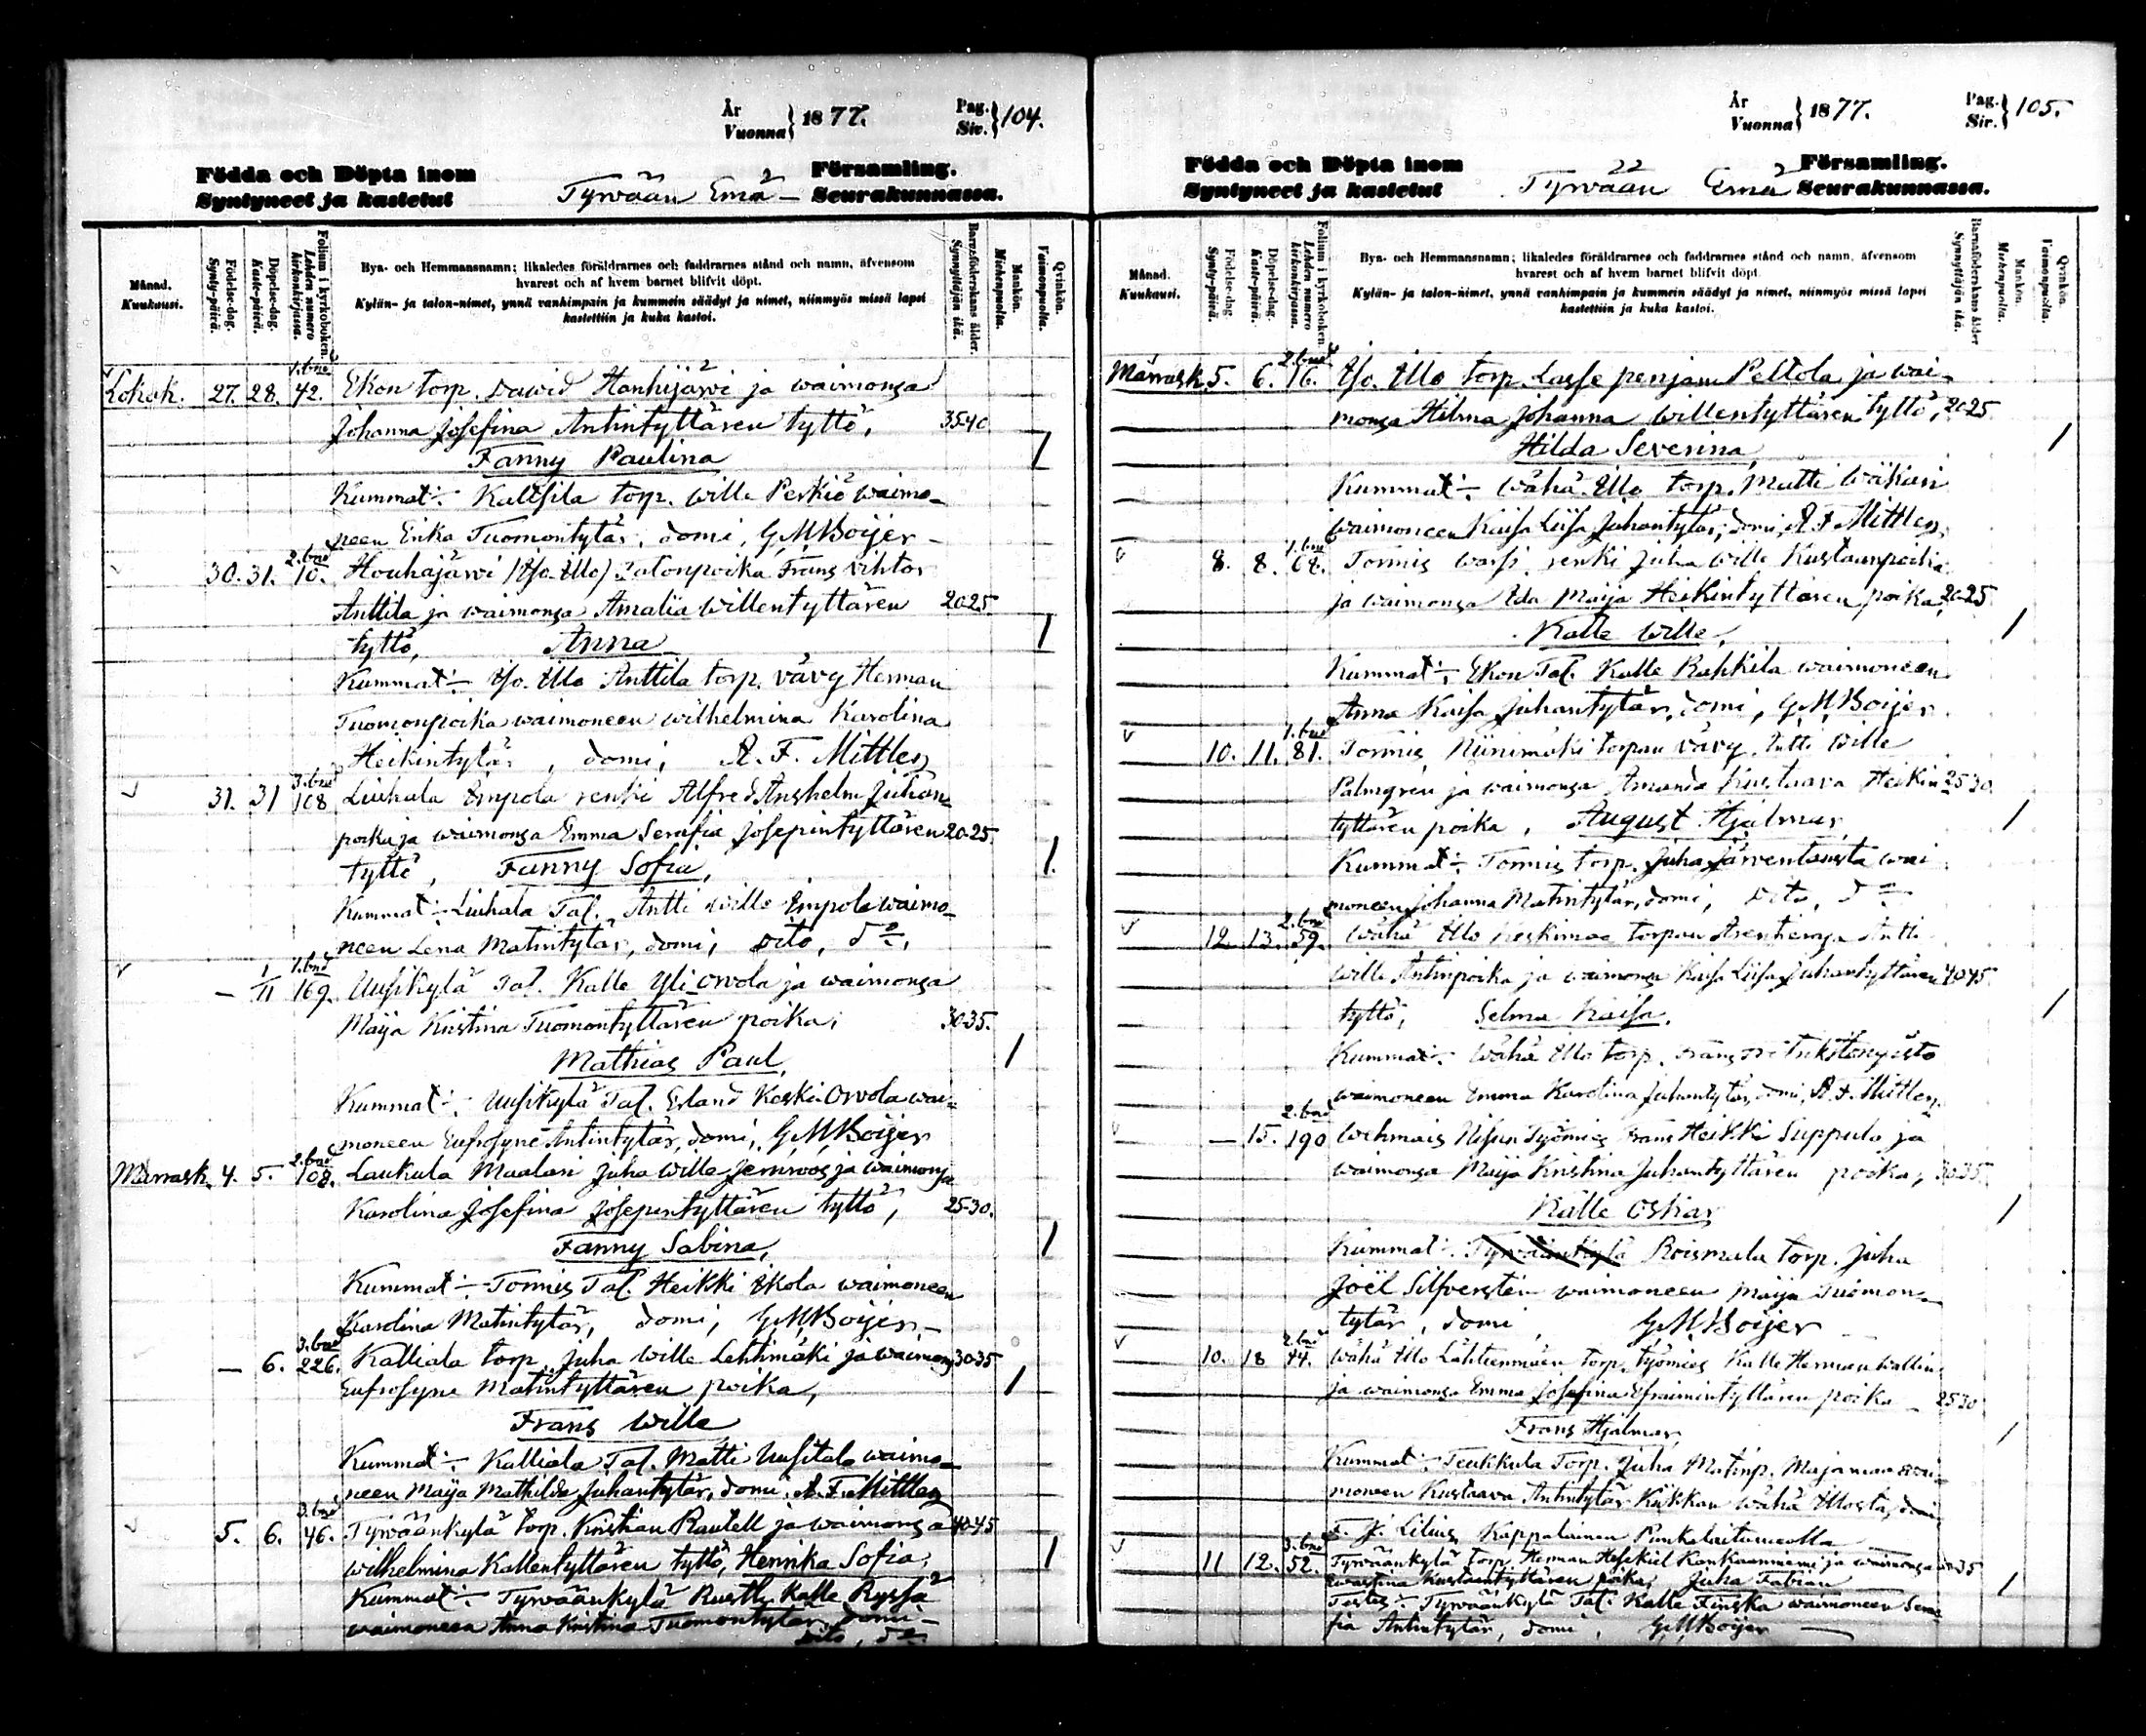 År
Vuonna } 1877.
Pag.
Siv. } 104.
Födda och Döpta inom
Syntyneet ja kastetut
Tyrwään Emä-
Församling.
Seurakunnassa.
Månad.
Kuukausi.
Födelse-dag.
Synty-päivä.
Döpelse-dag.
Kaste-päivä.
Folium i kyrkoboken.
Lehden numero kirkonkirjassa.
Bya- och Hemmansnamn; likaledes föräldrarnes och faddrarnes stånd och namn, äfvensom
hvarest och af hvem barnet blifvit döpt.
Kylän- ja talon-nimet, ynnä vanhimpain ja kummein säädyt ja nimet, niinmyös missä lapsi
kastettiin ja kuka kastoi.
Barnaföderskans ålder.
Synnyttäjän ikä.
Mankön.
Miehenpuolta.
Qvinkön.
Vaimonpuolta.
Lokak. 27. 28. 1. bnd 42. Ekon torp. Dawid Hanhijärwi ja waimonsa
Johanna Josefina Antintyttären tyttö, 35-40
Fanny Paulina
Kummat:- Kallsila torp. Wille Perkiö waimo-
neen Erika Tuomontytär, domi, G M Boijer -
30. 31. 2. bnd 10. Houhajärwi (Iso. Ello) Talonpoika Frans Vihtor
Anttila ja waimonsa Amalia Willentyttären 20-25
tyttö, Anna
Kummat:- Iso. Ello Anttila torp. vävy Herman
Tuomonpoika waimoneen Wilhelmina Karolina
Heikintytär, domi, A. F. Mittler
31. 31 3. bnd 108 Liuhala Empola renki Alfred Anshelm Juhan-
poika ja waimonsa Emma Serafia Josepintyttären 20-25
tyttö, Fanny Sofia,
Kummat:- Liuhala Tal. Antti Wille Empola waimo-
neen Lena Matintytär, domi, Dito, do,
— 1/11 1. bnd 169. Uusikylä Tal. Kalle Yli-Orvola ja waimonsa
Maija Kristina Tuomontyttären poika, 30-35.
Mathias Paul,
Kummat:- Uusikylä Tal. Erland Keski-Orvola wai-
moneen Eufrosyne Antintytär, domi, G M Boijer
Marrask. 4. 5. 2. bnd 108. Laukula Maalari Juha Wille Jernroos ja waimonsa
Karolina Josefina Josepintyttären tyttö, 25-30.
Fanny Sabina,
Kummat:- Tormis Tal. Heikki Ekola waimoneen
Karolina Matintytär, domi, G M Boijer -
— 6. 3. bnd 226. Kalliala torp. Juha Wille Lehtimäki ja waimonsa 30-35
Eufrosyne Matintyttären poika,
Frans Wille
Kummat:- Kalliala Tal. Matti Uusitalo waimo-
neen Maija Mathilda Juhantytär, domi, A. F. Mittler
5. 6. 3. bnd 46. Tyrwäänkylä torp. Kristian Rautell ja waimonsa 40-45
Wilhelmina Kallentyttären tyttö, Henrika Sofia,
Kummat:- Tyrwäänkylä Rusth. Kalle Ryssä
waimoneen Anna Kristina Tuomontytär domi-
Dito, do
År
Vuonna } 1877.
Pag.
Sir. } 105.
Födda och Döpta inom
Syntyneet ja kastetut
Tyrwään Emä
Församling.
Seurakunnassa.
Månad.
Kuukausi.
Födelse-dag.
Synty-päivä.
Döpelse-dag.
Kaste-päivä.
Folium i kyrkoboken.
Lehden numero kirkonkirjassa.
Bya- och Hemmansnamn; likaledes föräldrarnes och faddrarnes stånd och namn, äfvensom
hvarest och af hvem barnet blifvit döpt.
Kylän- ja talon-nimet, ynnä vanhimpain ja kummein säädyt ja nimet, niinmyös missä lapsi
kastettiin ja kuka kastoi.
Barnaföderskans ålder
Synnyttäjän ikä.
Mankön.
Miehenpuolta.
Qvinkön.
Vaimonpuolta.
Marrask. 5. 6. 2. bnd 16. Iso. Ello torp. Lasse penjam Peltola ja wai-
monsa Hilma Johanna Willentyttären tyttö, 20-25
Hilda Severina
Kummat:- Wähä. Ello torp. Matti Wiikari
waimoneen Kaisa Liisa Juhantytär, domi, A F Mittler
8. 8. 1. bnd 68. Tormis renki Juha Wille Kustaanpoika
ja waimonsa Ida Maija Heikintyttären poika, 20-25
Kalle Wille,
Kummat:- Ekon Tal. Kalle Rahkila waimoneen
Anna Kaisa Juhantytär, domi, G M Boijer.
10. 11. 1. bnd 81. Tormis, Niinimäki torpan vävy Antti Wille
Palmgren ja waimonsa Amanda Kustaava Heikin- 25-30
tyttären poika, August Hjalmar,
Kummat:- Tormis torp. Juha Järventausta wai
moneen Johanna Matintytär, domi, Dito, do
12. 13. 2. bnd 59. Wähä Ello torpan Antti
Wille Antinpoika ja waimonsa Kaisa Liisa Juhantyttären 40-45
tyttö, Selma Kaisa,
Kummat:- Wähä Ello torp. Frans
waimoneen Emma Karolina Juhantytär, domi, A. F. Mittler
— 15. 2. bnd 190 Wehmais Työmies Frans Heikki Suppula ja
waimonsa Maija Kristina Juhantyttären poika, 30-35
Kalle Oskar
Kummat:- Tyrwäänkylä Roismala torp. Juha
Joël Silfversten waimoneen Maija Tuomon-
tytär, domi, G M Boijer
10. 18 2. bnd 44. Wähä Ello Lähteenmäen torp. työmies Kalle Herman Wallin
ja waimonsa Emma Josefina Efraimintyttären poika - 25-30
Frans Hjalmar,
Kummat:- Teukkula Torp. Juha Matinp. Majamaa wai-
moneen Kustaava Antintytär Kiikkan Wähä Ellosta, domi
F. J. Lilius Kappalainen Punkalaitumella
11 12. 3. bnd 52. Tyrwäänkylä torp. Herman Heskiel Kankaanniemi ja waimonsa 30-35
Ewastina Kustaantyttären poika, Juha Fabian
Testes:- Tyrwäänkylä Tal. Kalle Finska waimoneen Sera-
fia Antintytär, domi, G M Boijer